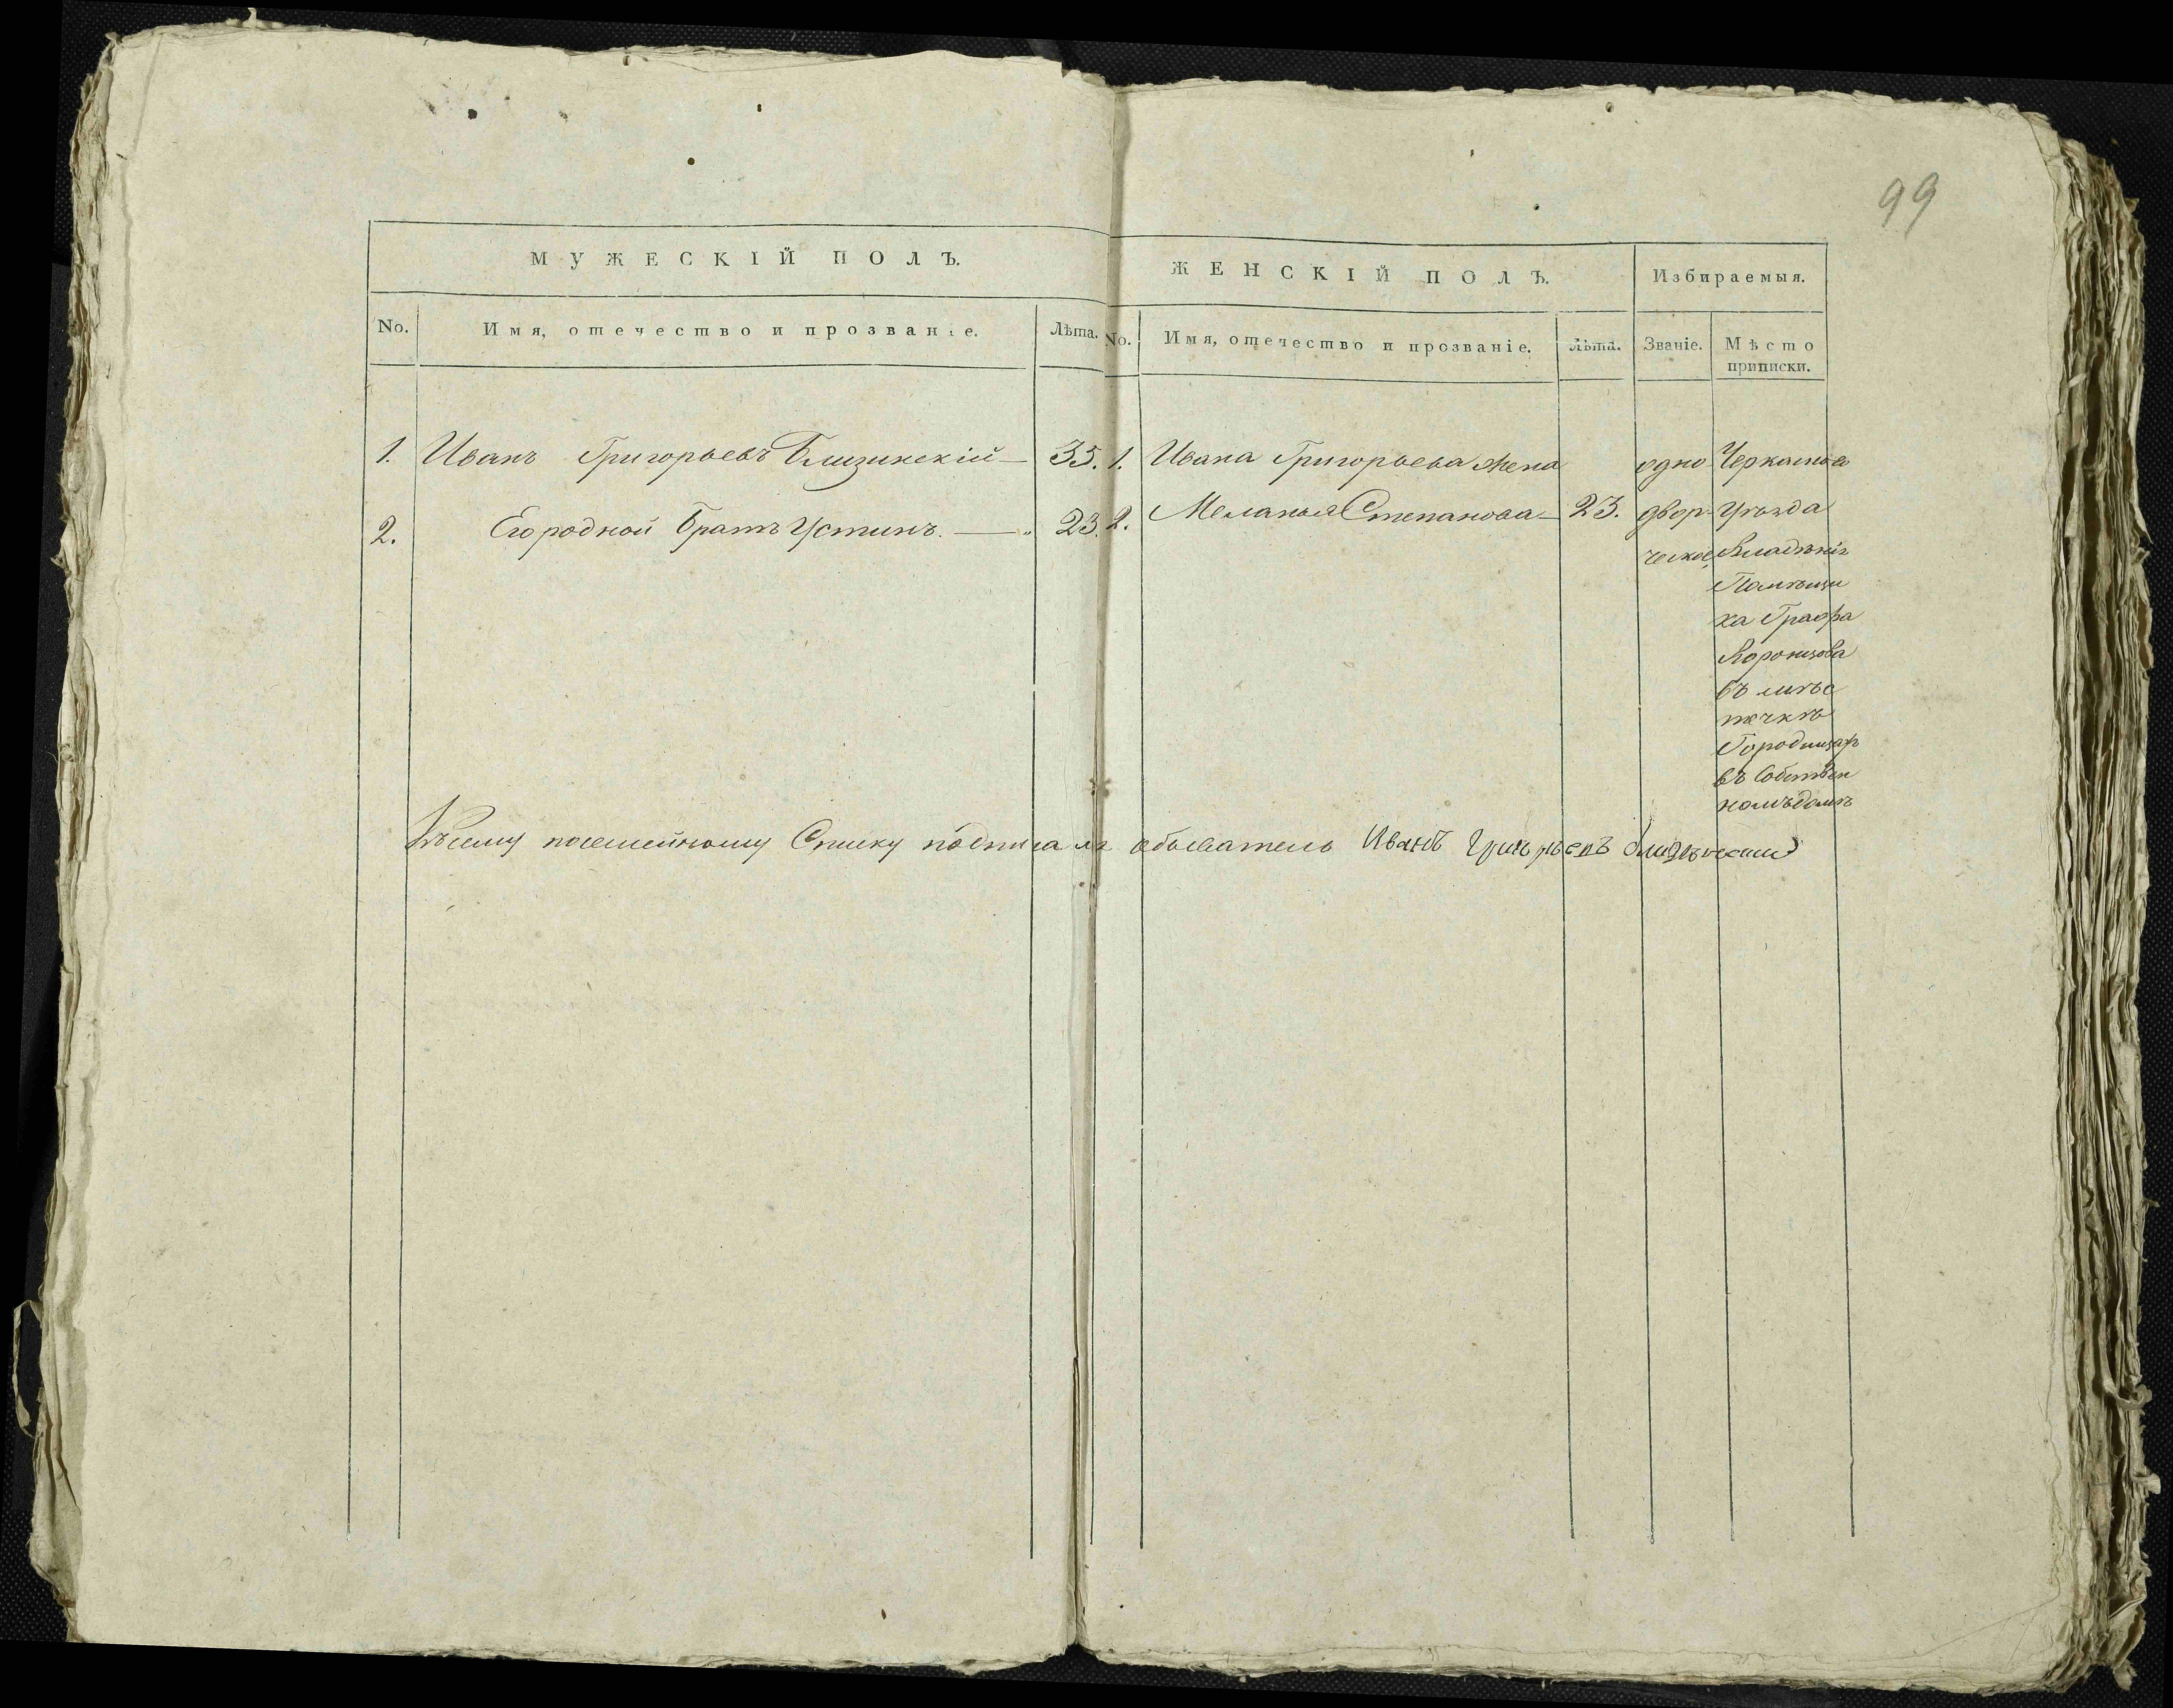 99
МУЖЕСКІЙ ПОЛЪ.
ЖЕНСКІЙ ПОЛЪ.
Избираемыя.
No.
Имя, отечество и прозваніе.
Лѣта.
No.
Имя, отечество и прозваніе.
Лѣта.
Званіе.
Мѣсто
приписки.
1. Иванъ Григорьевъ Близинскій — 35.
2. Его родной Братъ Устинъ. — " 23.
1. Ивана Григорьева жена
2. Меланья Степанова — 23.
одно
двор
ческое,
Черкаскаго
Уѣзда
Владѣнія
Помѣщи
ка Графа
Воронцова
въ мѣс
течкѣ
Городищахъ
въ Собствен
номъ домѣ
Къ сему посемейному Списку подписался обыватель Иванъ Григорьевъ